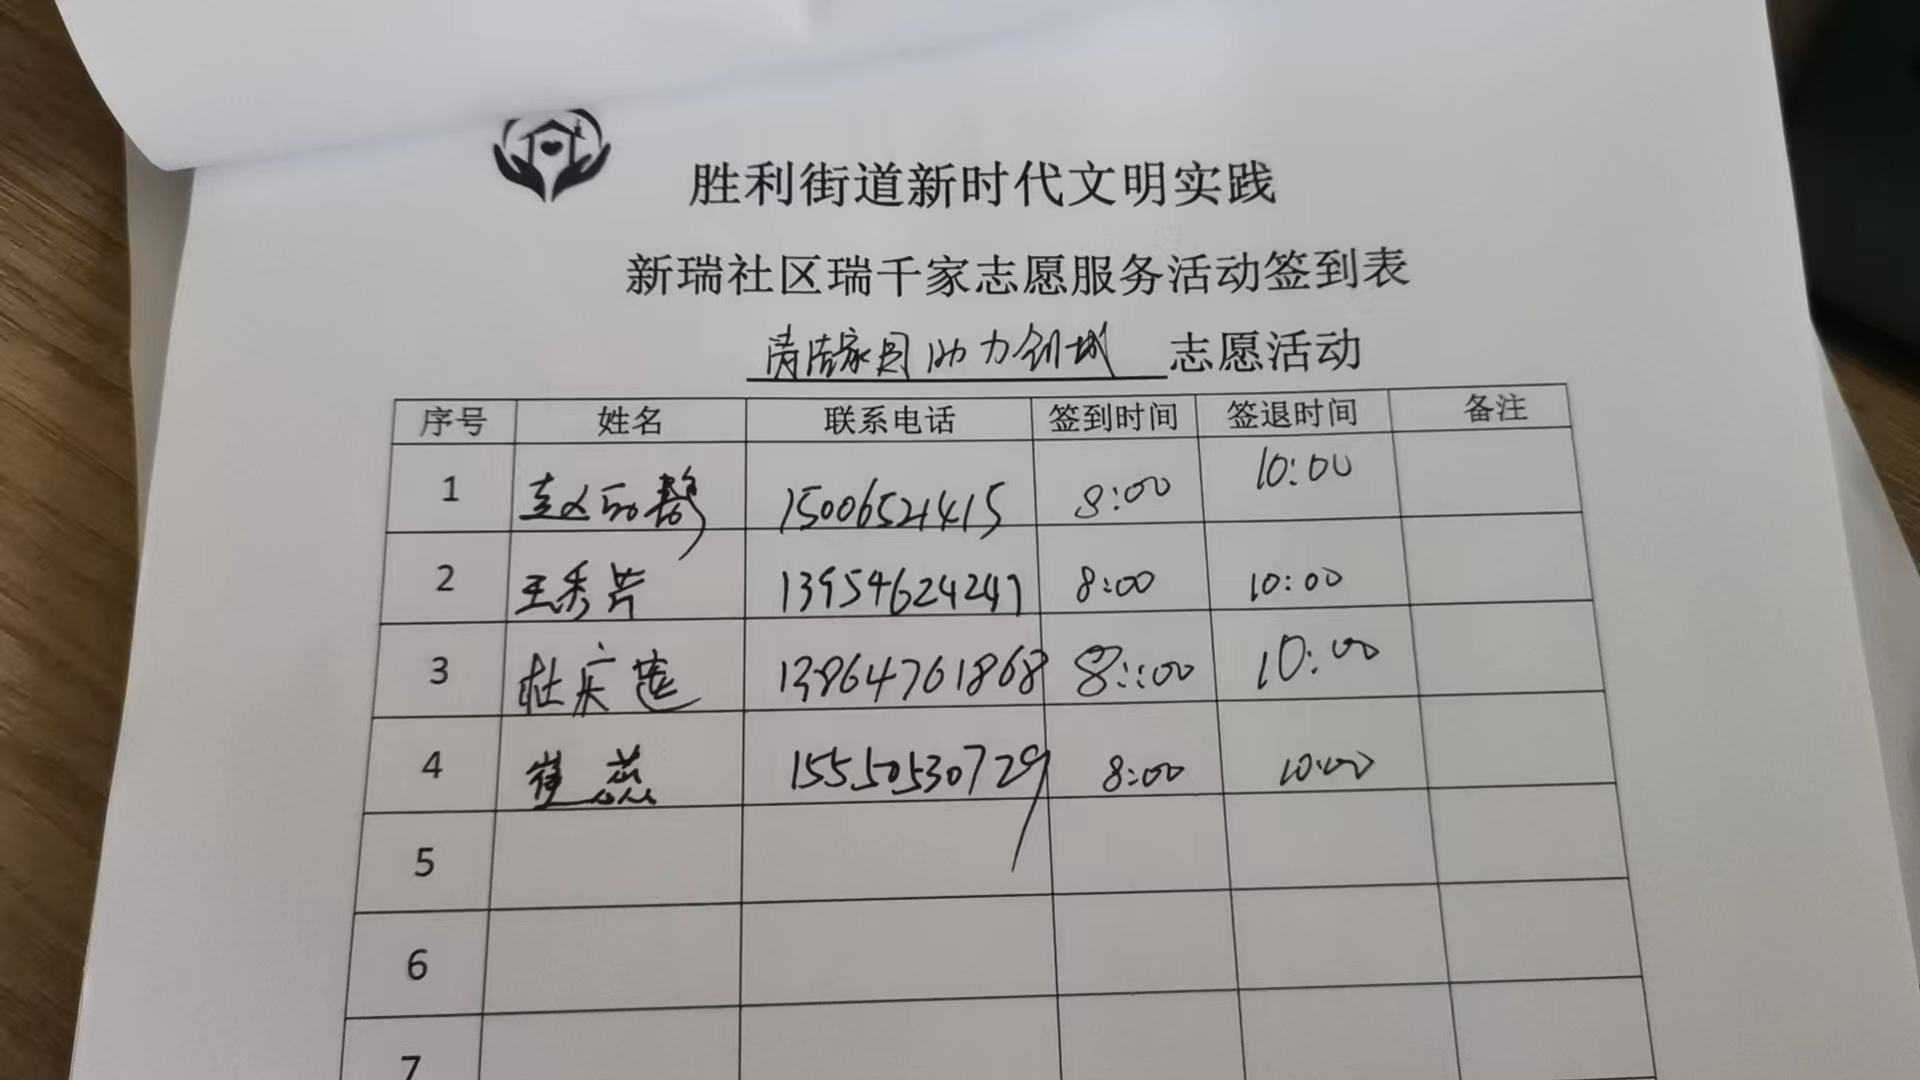 胜利街道新时代文明实践
新瑞社区瑞千家志愿服务活动签到表
清洁家园助力创城 志愿活动
序号 姓名 联系电话 签到时间 签退时间 备注
1 赵 15006521415 8:00 10:00
2 王秀芹 13954624247 8:00 10:00
3 杜庆莲 13864761868 8:00 10:00
4 崔蕊 15550530729 8:00 10:00
5
6
7